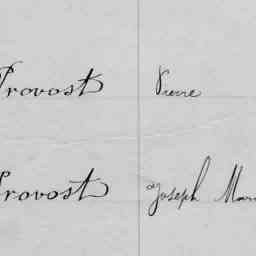 Provost Pierre
Provost Joseph